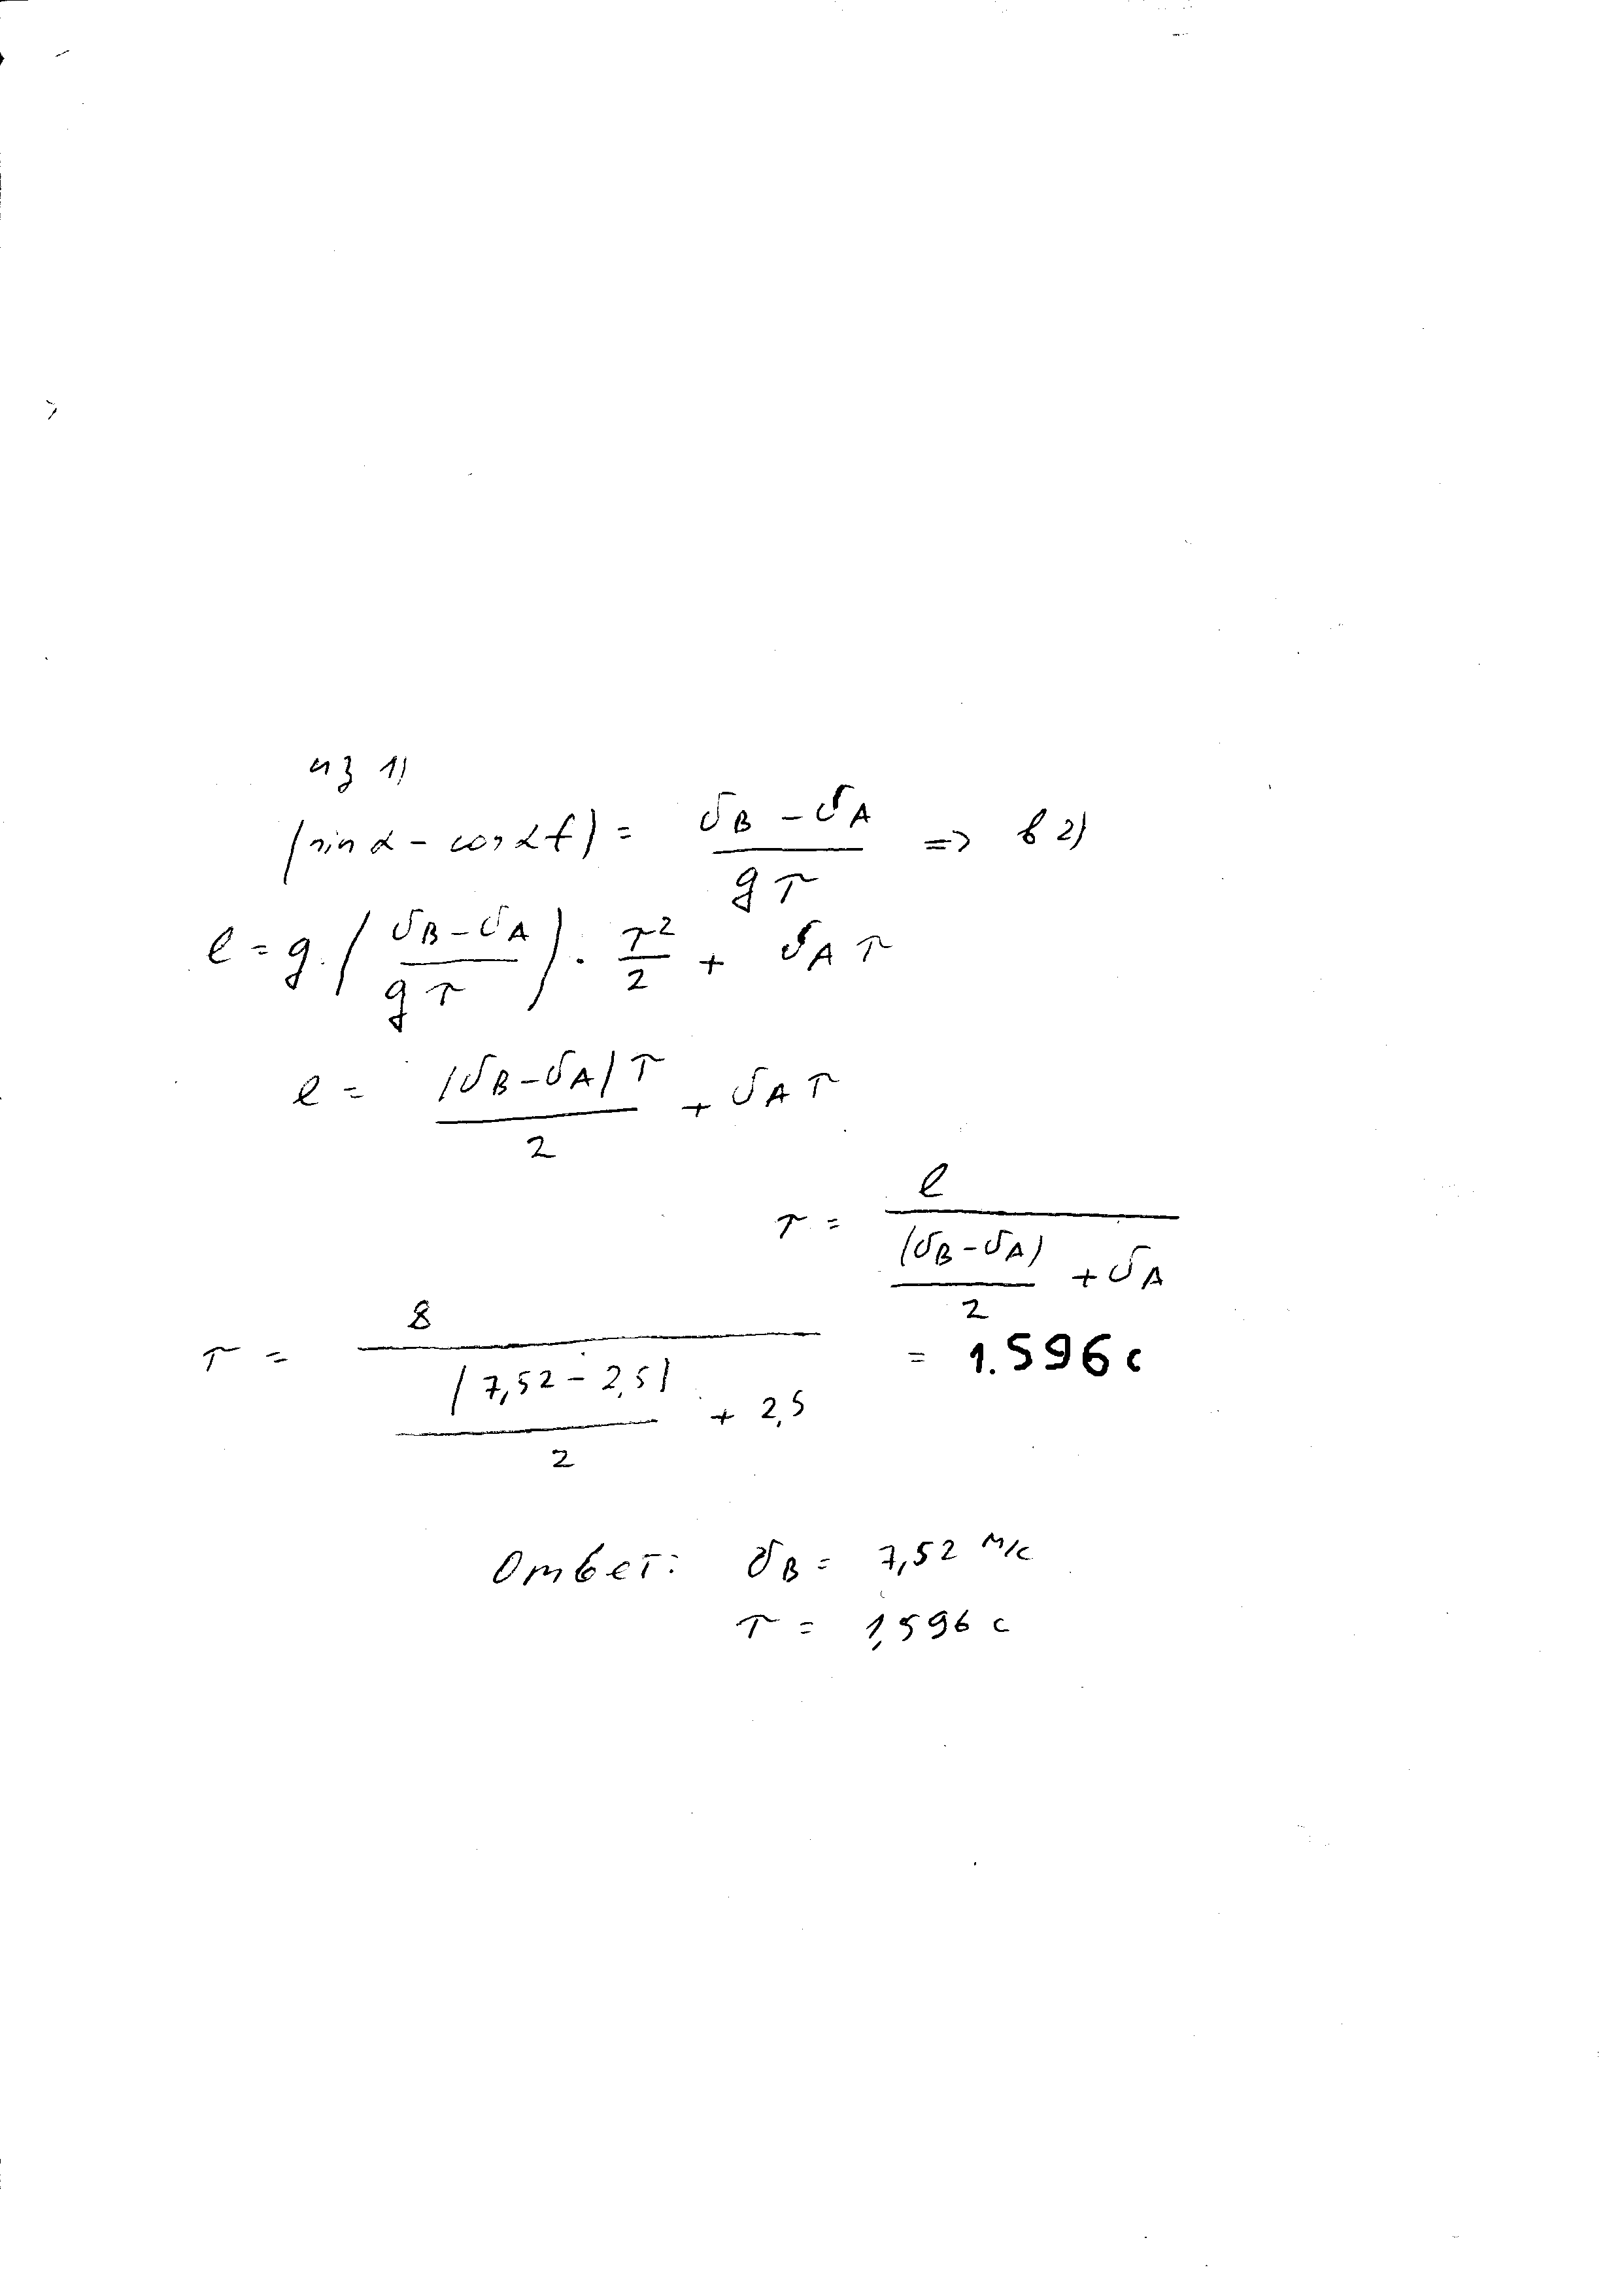 из 1)
(sin α - cos α f) = (υB - υA) / (g τ) => в 2)
l = g · ((υB - υA) / (g τ)) · τ² / 2 + υA τ
l = (υB - υA) τ / 2 + υA τ
τ = l / ((υB - υA) / 2 + υA)
τ = 8 / ((7,52 - 2,5) / 2 + 2,5) = 1.596 с
Ответ: υB = 7,52 м/с
τ = 1,596 с